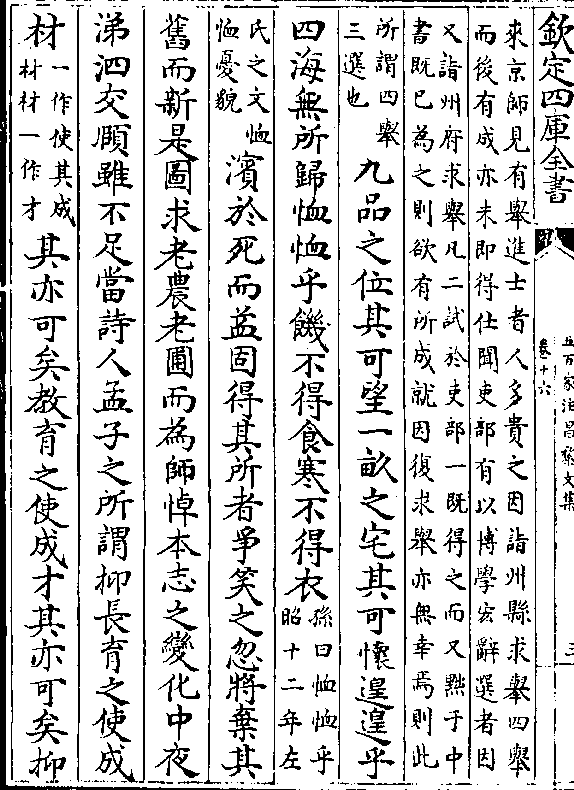 欽定四庫全書
五百家注昌黎文集
卷十六
三
來京師見有舉進士者人多貴之因詣州縣求舉四舉
而後有成亦未即得仕聞吏部有以博學宏辭選者因
又詣州府求舉凡二試於吏部一既得之而又黜于中
書既已為之則欲有所成就因復求舉亦無幸焉則此
所謂四舉
三選也
九品之位其可望一畝之宅其可懷遑遑乎
四海無所歸恤恤乎饑不得食寒不得衣
孫曰恤恤乎
昭十二年左
氏之文恤
恤憂貌
濱於死而益固得其所者爭笑之忽將棄其
舊而新是圖求老農老圃而為師悼本志之變化中夜
涕泗交頤雖不足當詩人孟子之所謂抑長育之使成
材
一作使其成
材材一作才
其亦可矣教育之使成才其亦可矣抑